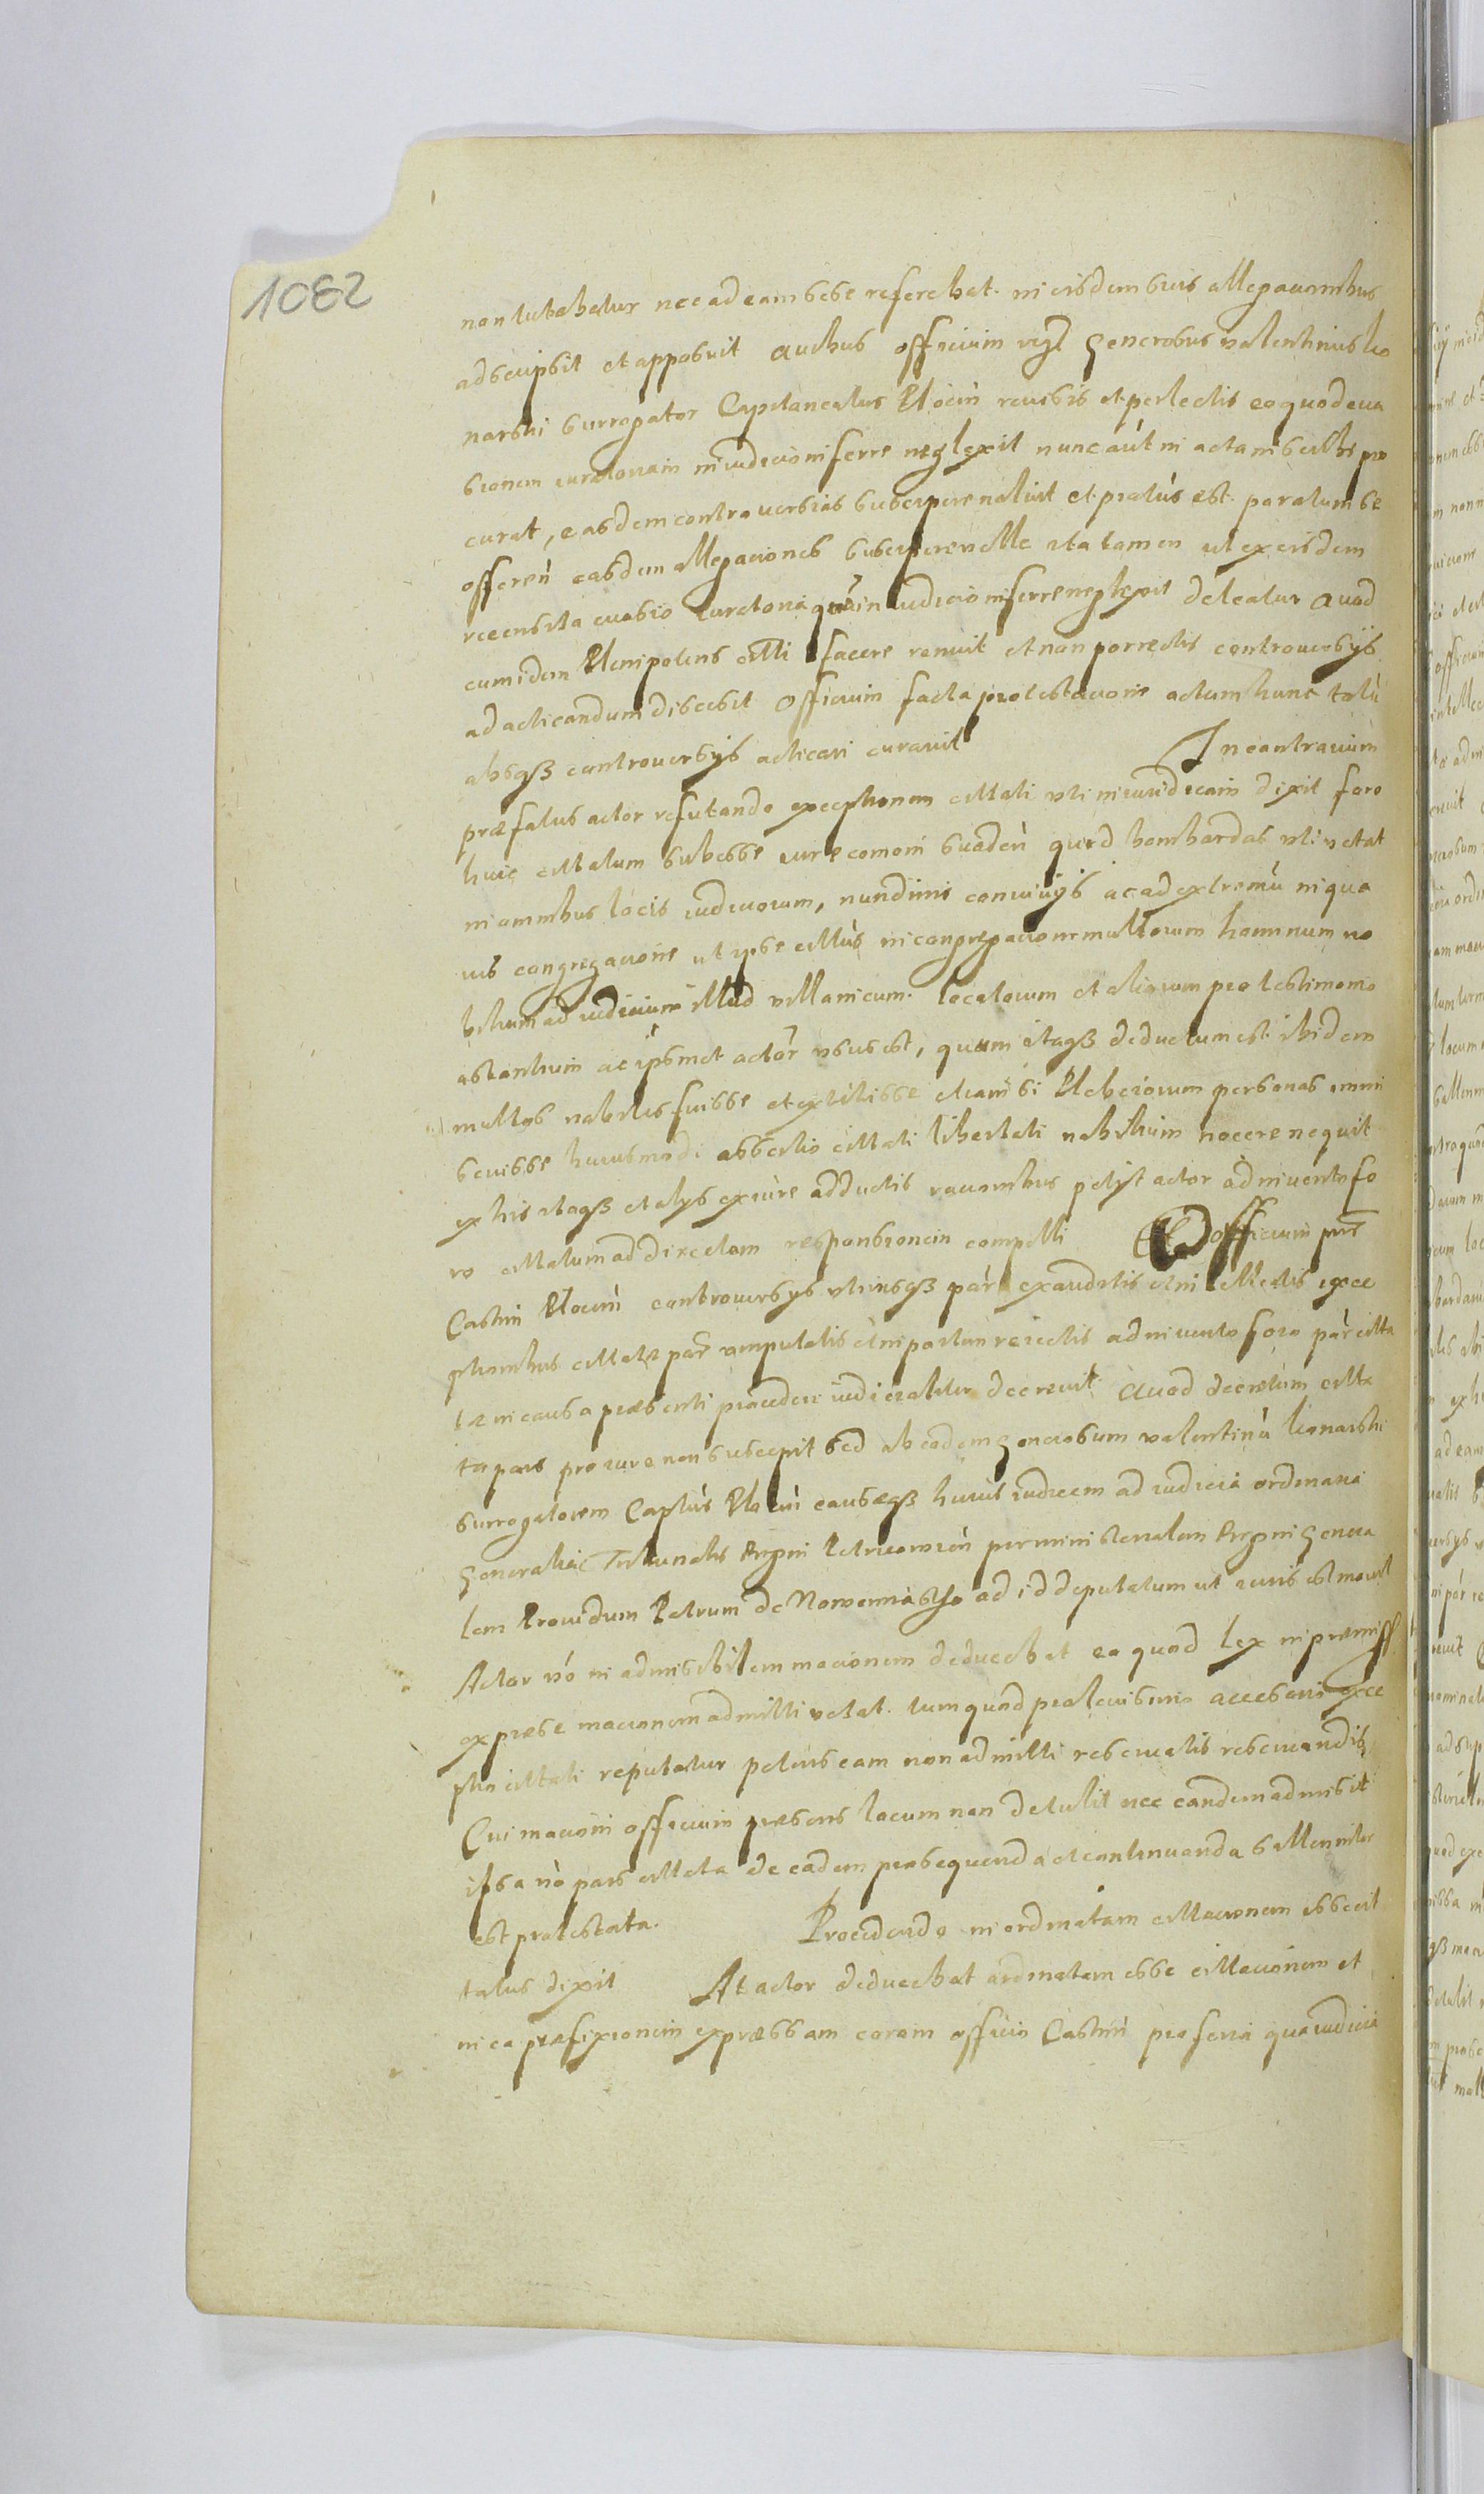 1082
non tutabatur nec ad eam sese referebat. in eisdem suis allegationibus
adscripsit et apposuit Quibus officium vigl Generosus valentinus Leo
narski surrogator Capitaneatus Plocen revisis et perlectis eo quod eva
sionem iuratoriam in iudicio inferre neglexit nunc aut in acta inscribi pro
curat, easdem controversias suscipere noluit et protus est paratum se
offeren easdem allegationes suscipere velle ita tamen ut ex eisdem
recensita evasio iuratoria quam in iudicio inferre neglexit deleatur Quod
cum idem Plenipotens citti facere renuit et non porrectis controversijs
ad acticandum discessit Officium facta protestatione actum hunc totu
absqß controversijs acticari curavit In contrarium
præfatus actor refutando exceptionem cittati uti iniuridicam dixit foro
huic cittatum subesse iure comoni suaden quod bombardas uti vetat
in omnibus locis iudiciorum, nundinis convivijs ac ad extremu in qua
vis congregatione ut ipse cittus in congregatione multorum hominum no
bilium ad iudicium illud villanicum locatorum et aliorum pro testimonio
astantium ac ipsmet actor usus est, quum itaqß deductum est ibidem
multos nobiles fuisse et extitisse etiam si Plebeiorum personas omni
scuisse huiusmodi assertio cittati libertati nobilium nocere nequit
ex his itaqß et alys ex iure adductis rationibus petijt actor ad invento fo
ro cittatum ad directam responsionem compelli Et Officium pns
Castrn Plocen controversys utriusqß par exauditis et intellectis exce
ptionibus cittatæ par amputatis et in partem reiectis ad invento foro par citta
tæ in causa præsenti procedere iudicialiter decrevit Quod decretum citta
ta pars pro iure non suscepit sed ab eodem Generosum valentinu Leonarski
surrogatorem Captus Plocen causæqß huius iudicem ad iudicia ordinaria
Generalia Tribunalis Regni Petricovien per ministerialem Regni Genera
lem Providum Petrum de Nowemiasto ad id deputatum ut iuris est movit
Actor vo in admissibilem motionem deducebat eo quod lex in præmiss
expresse motionem admitti vetat. tum quod pro levissimo accessorio exce
ptio cittati reputatur petens eam non admitti reservatis reservandis
Cui motioni officium præsens locum non detulit nec eandem admisit
ipsa vo pars cittata de eadem prosequenda et continuanda sollenniter
est protestata. Procedendo inordinatam cittationem esse cit
tatus dixit At actor deducebat ordinatam esse cittationem et
in ea præfixionem expressam coram officio Castrn proferri qua iudicia